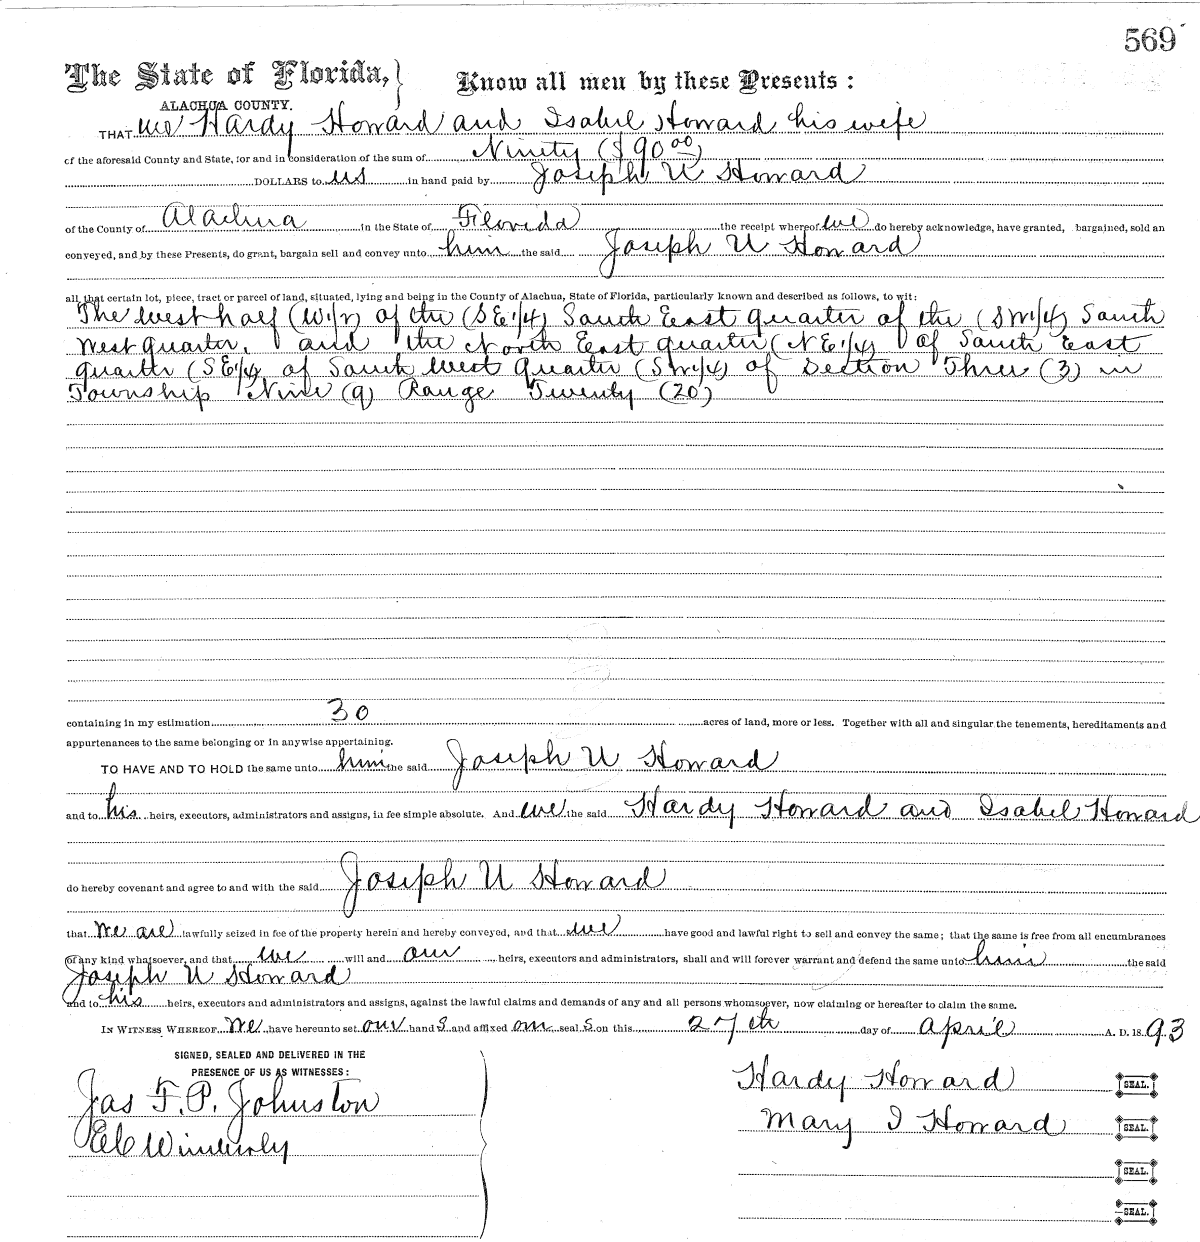 569
The State of Florida,} Know all men by these Presents :
ALACHUA COUNTY.
THAT we Hardy Howard and Isabel Howard his wife
of the aforesaid County and State, for and in consideration of the sum of Ninety ($90 00)
DOLLARS to us in hand paid by Joseph U Howard
of the County of Alachua in the State of Florida the receipt whereof we do hereby acknowledge, have granted, bargained, sold an
conveyed, and by these Presents, do grant, bargain sell and convey unto him the said Joseph U Howard
all that certain lot, piece, tract or parcel of land, situated, lying and being in the County of Alachua, State of Florida, particularly known and described as follows, to wit:
The west half (W1/2) of the (SE1/4) South East quarter of the (SW1/4) South
West quarter. and the North East quarter (NE1/4) of South East
quarter (SE1/4) of South West quarter (SW1/4) of Section Three (3) in
Township Nine (9) Range Twenty (20)
containing in my estimation 30 acres of land, more or less. Together with all and singular the tenements, hereditaments and
appurtenances to the same belonging or in anywise appertaining.
TO HAVE AND TO HOLD the same unto him the said Joseph U Howard
and to his heirs, executors, administrators and assigns, in fee simple absolute. And we the said Hardy Howard and Isabel Howard
do hereby covenant and agree to and with the said Joseph U Howard
that we are lawfully seized in fee of the property herein and hereby conveyed, and that we have good and lawful right to sell and convey the same; that the same is free from all encumbrances
of any kind whatsoever, and that we will and our heirs, executors and administrators, shall and will forever warrant and defend the same unto him the said
Joseph U Howard
and to his heirs, executors and administrators and assigns, against the lawful claims and demands of any and all persons whomsoever, now claiming or hereafter to claim the same.
IN WITNESS WHEREOF We have hereunto set our hand s and affixed our seal s on this 27th day of April A. D. 18 93
SIGNED, SEALED AND DELIVERED IN THE
PRESENCE OF US AS WITNESSES:
Jas F. P. Johnston
EC Wimberly
Hardy Howard SEAL.
Mary I Howard SEAL.
SEAL.
SEAL.